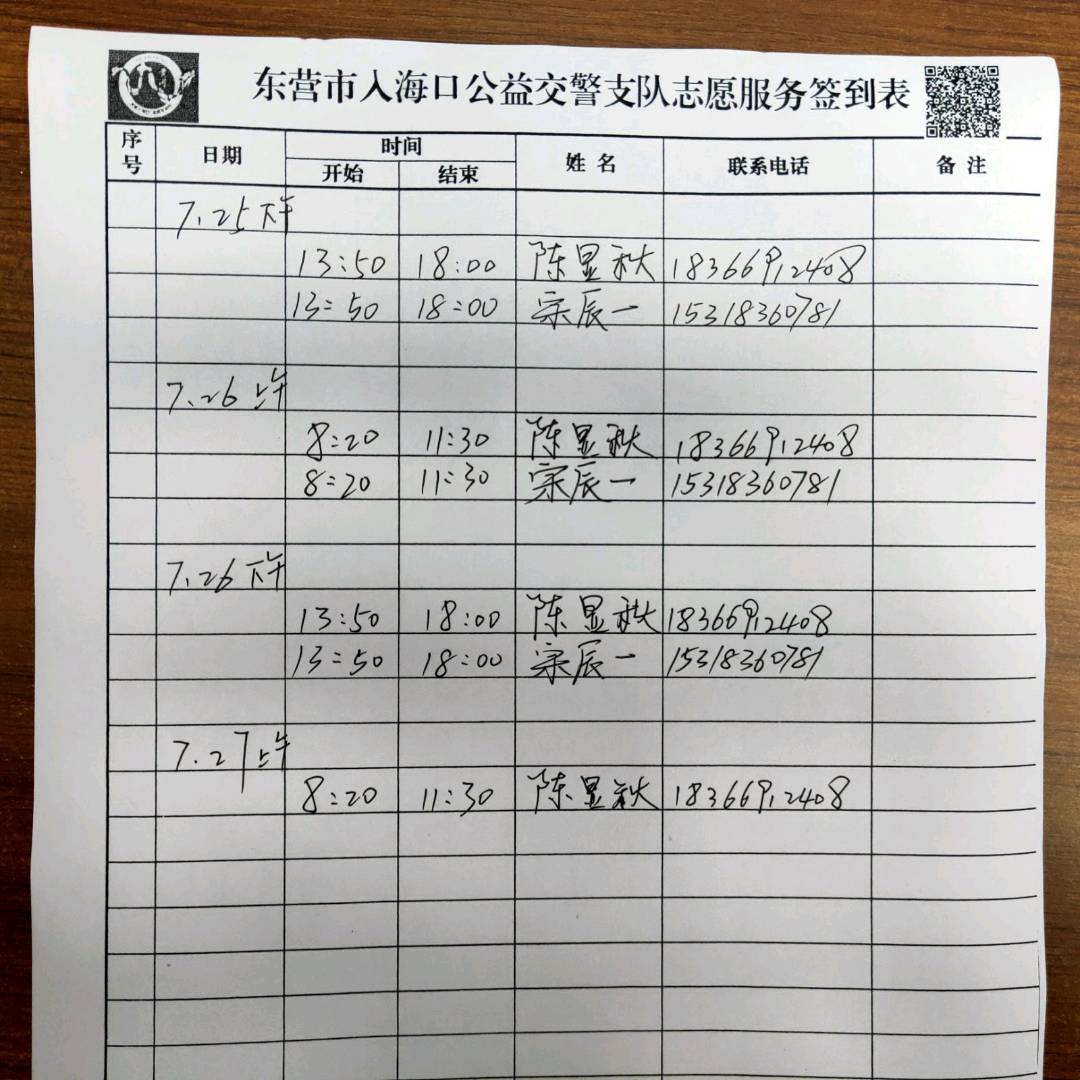 东营市入海口公益交警支队志愿服务签到表
序号 日期 时间 姓名 联系电话 备注
开始 结束
7.25下午
13:50 18:00 陈显秋 18366912408
13:50 18:00 宗辰一 15318360781
7.26上午
8:20 11:30 陈显秋 18366912408
8:20 11:30 宗辰一 15318360781
7.26下午
13:50 18:00 陈显秋 18366912408
13:50 18:00 宗辰一 15318360781
7.27上午
8:20 11:30 陈显秋 18366912408